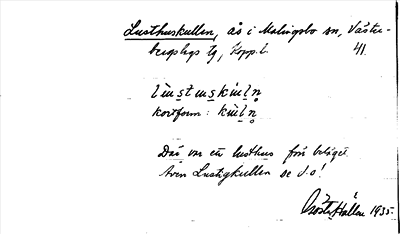 Lusthuskullen, ås i Malingsbo sn, Väster-
bergslags tg, Kopp. l. 41.
kortform:
Där var ett lusthus förr beläget
Även Lustigkullen se d.o!
1935.